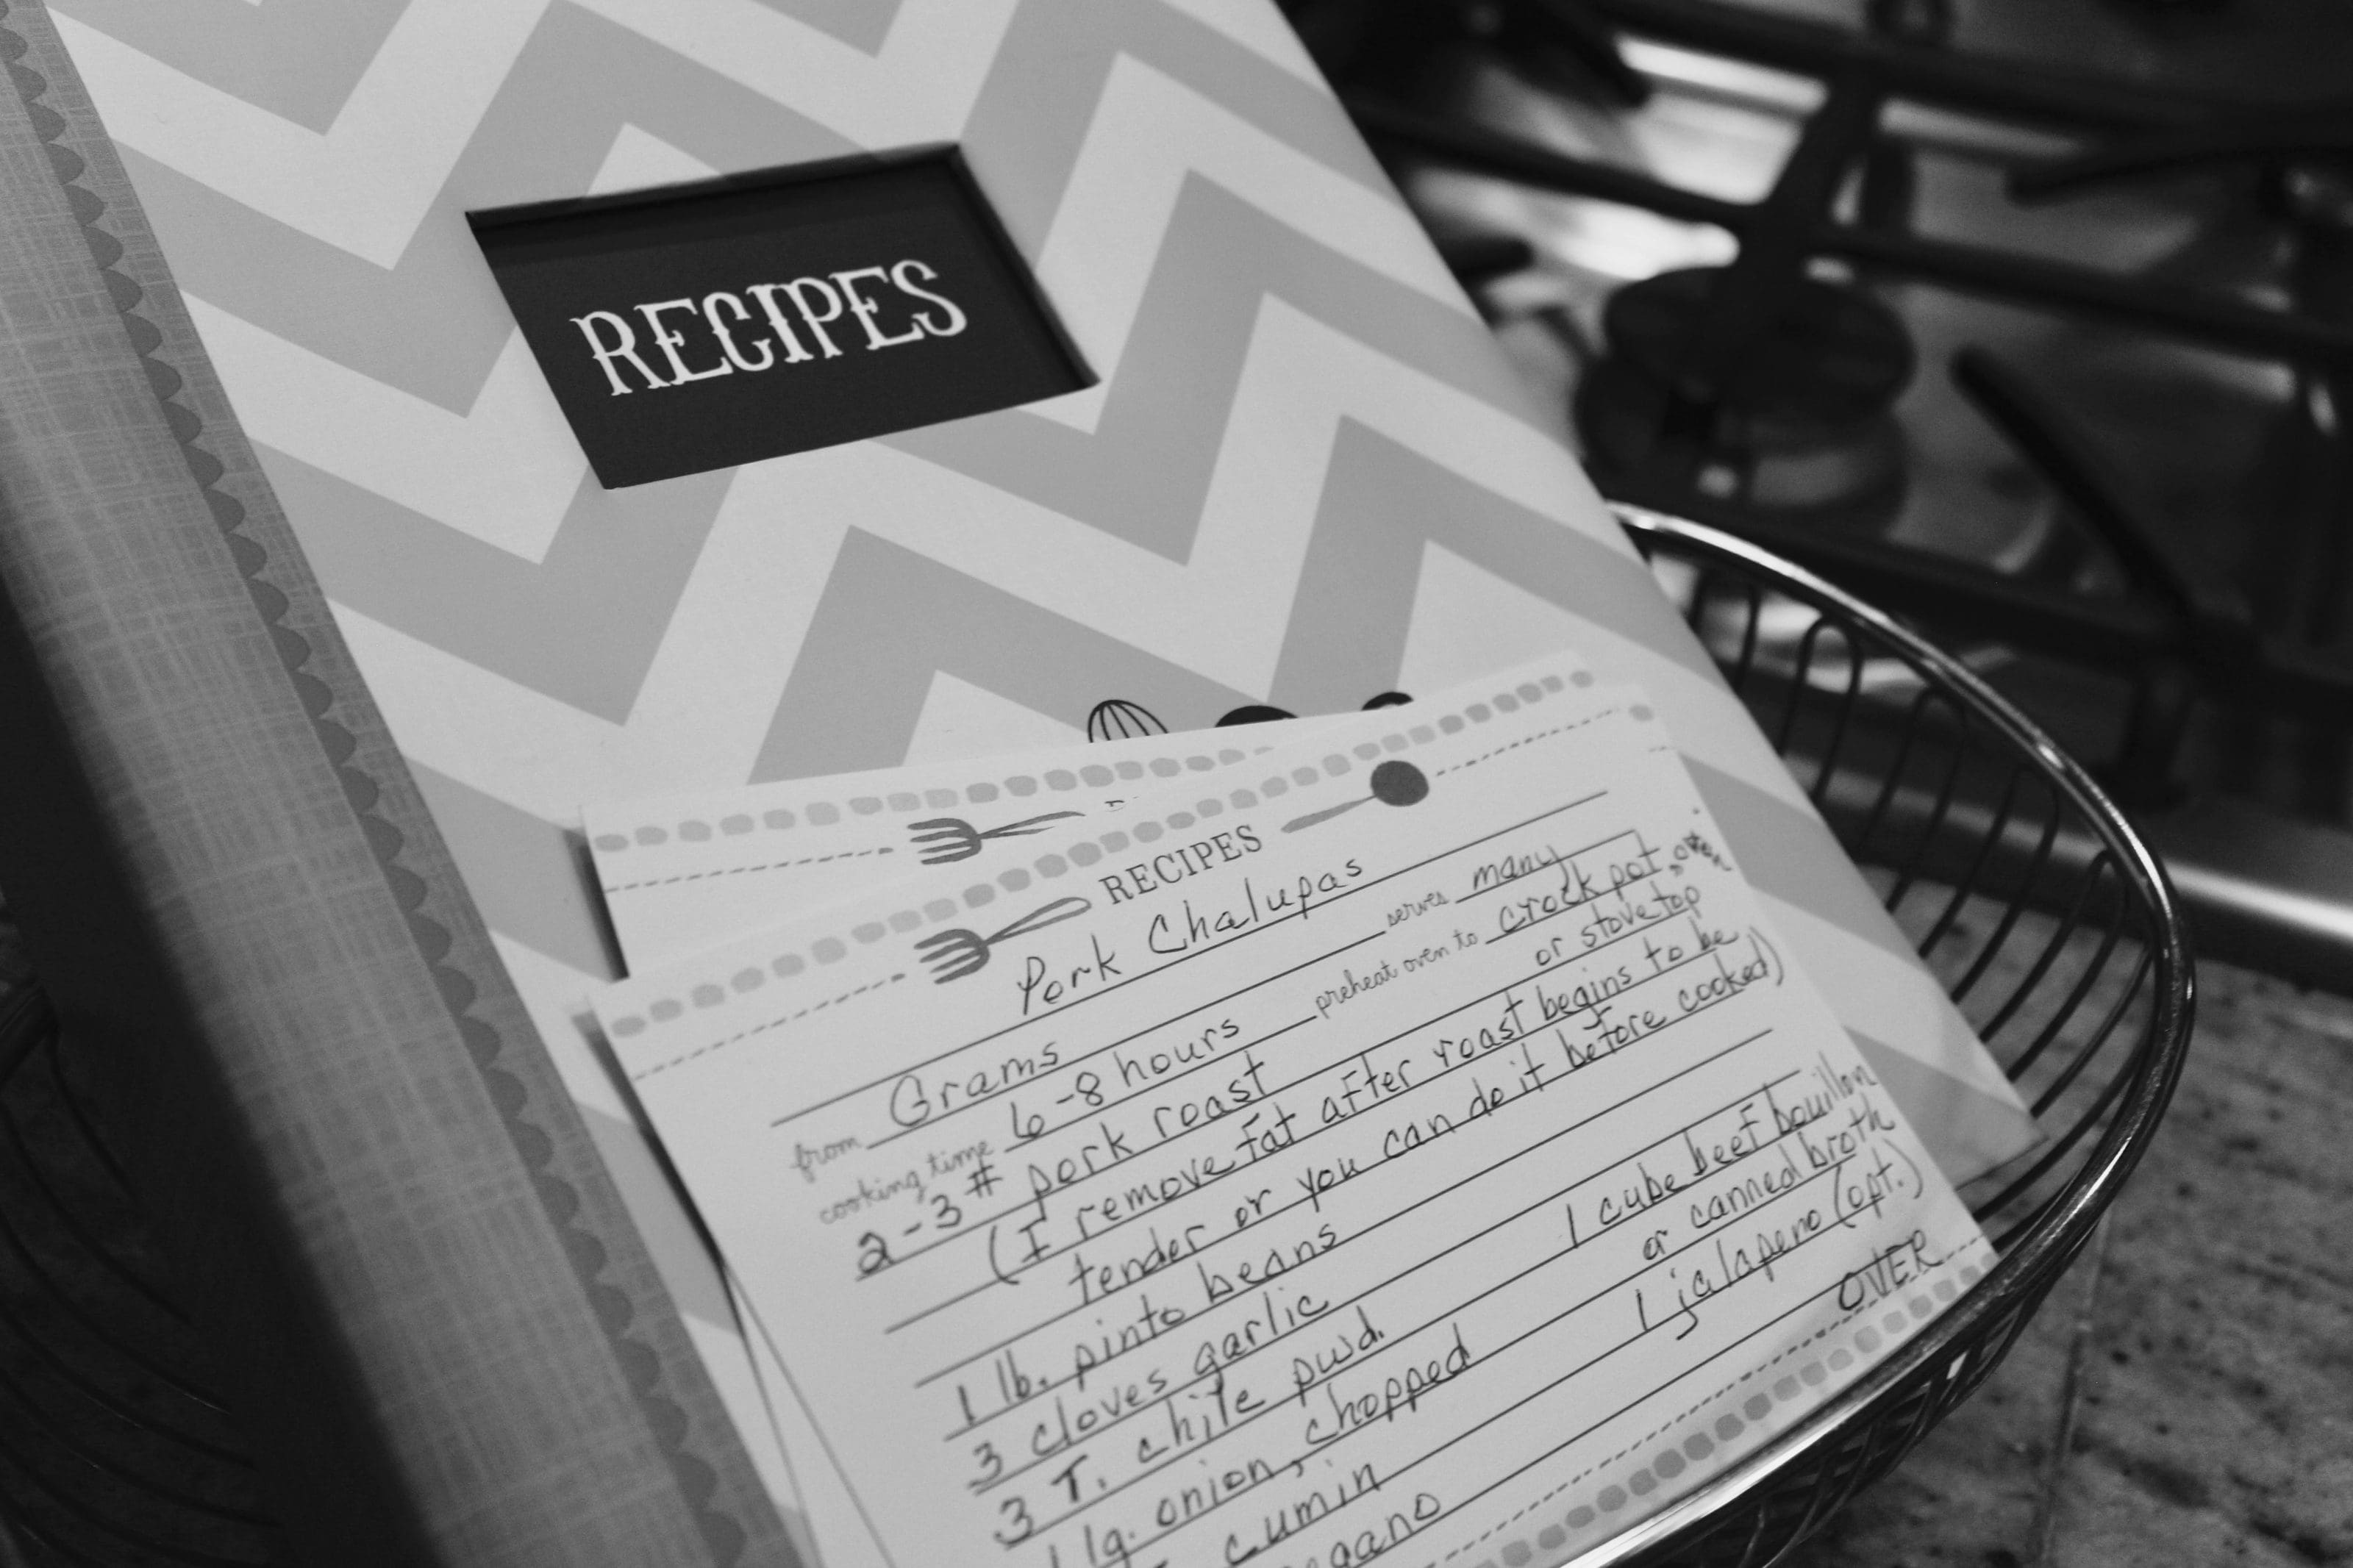 RECIPES
RECIPES
Pork Chalupas
from Grams serves many
cooking time 6-8 hours preheat oven to crock pot, oven
or stovetop
2-3# pork roast
(I remove fat after roast begins to be
tender or you can do it before cooked)
1 lb. pinto beans
3 cloves garlic 1 cube beef bouillon
3 T. chile pwd. or canned broth
1 lg. onion, chopped 1 jalapeno (opt.)
cumin
OVER